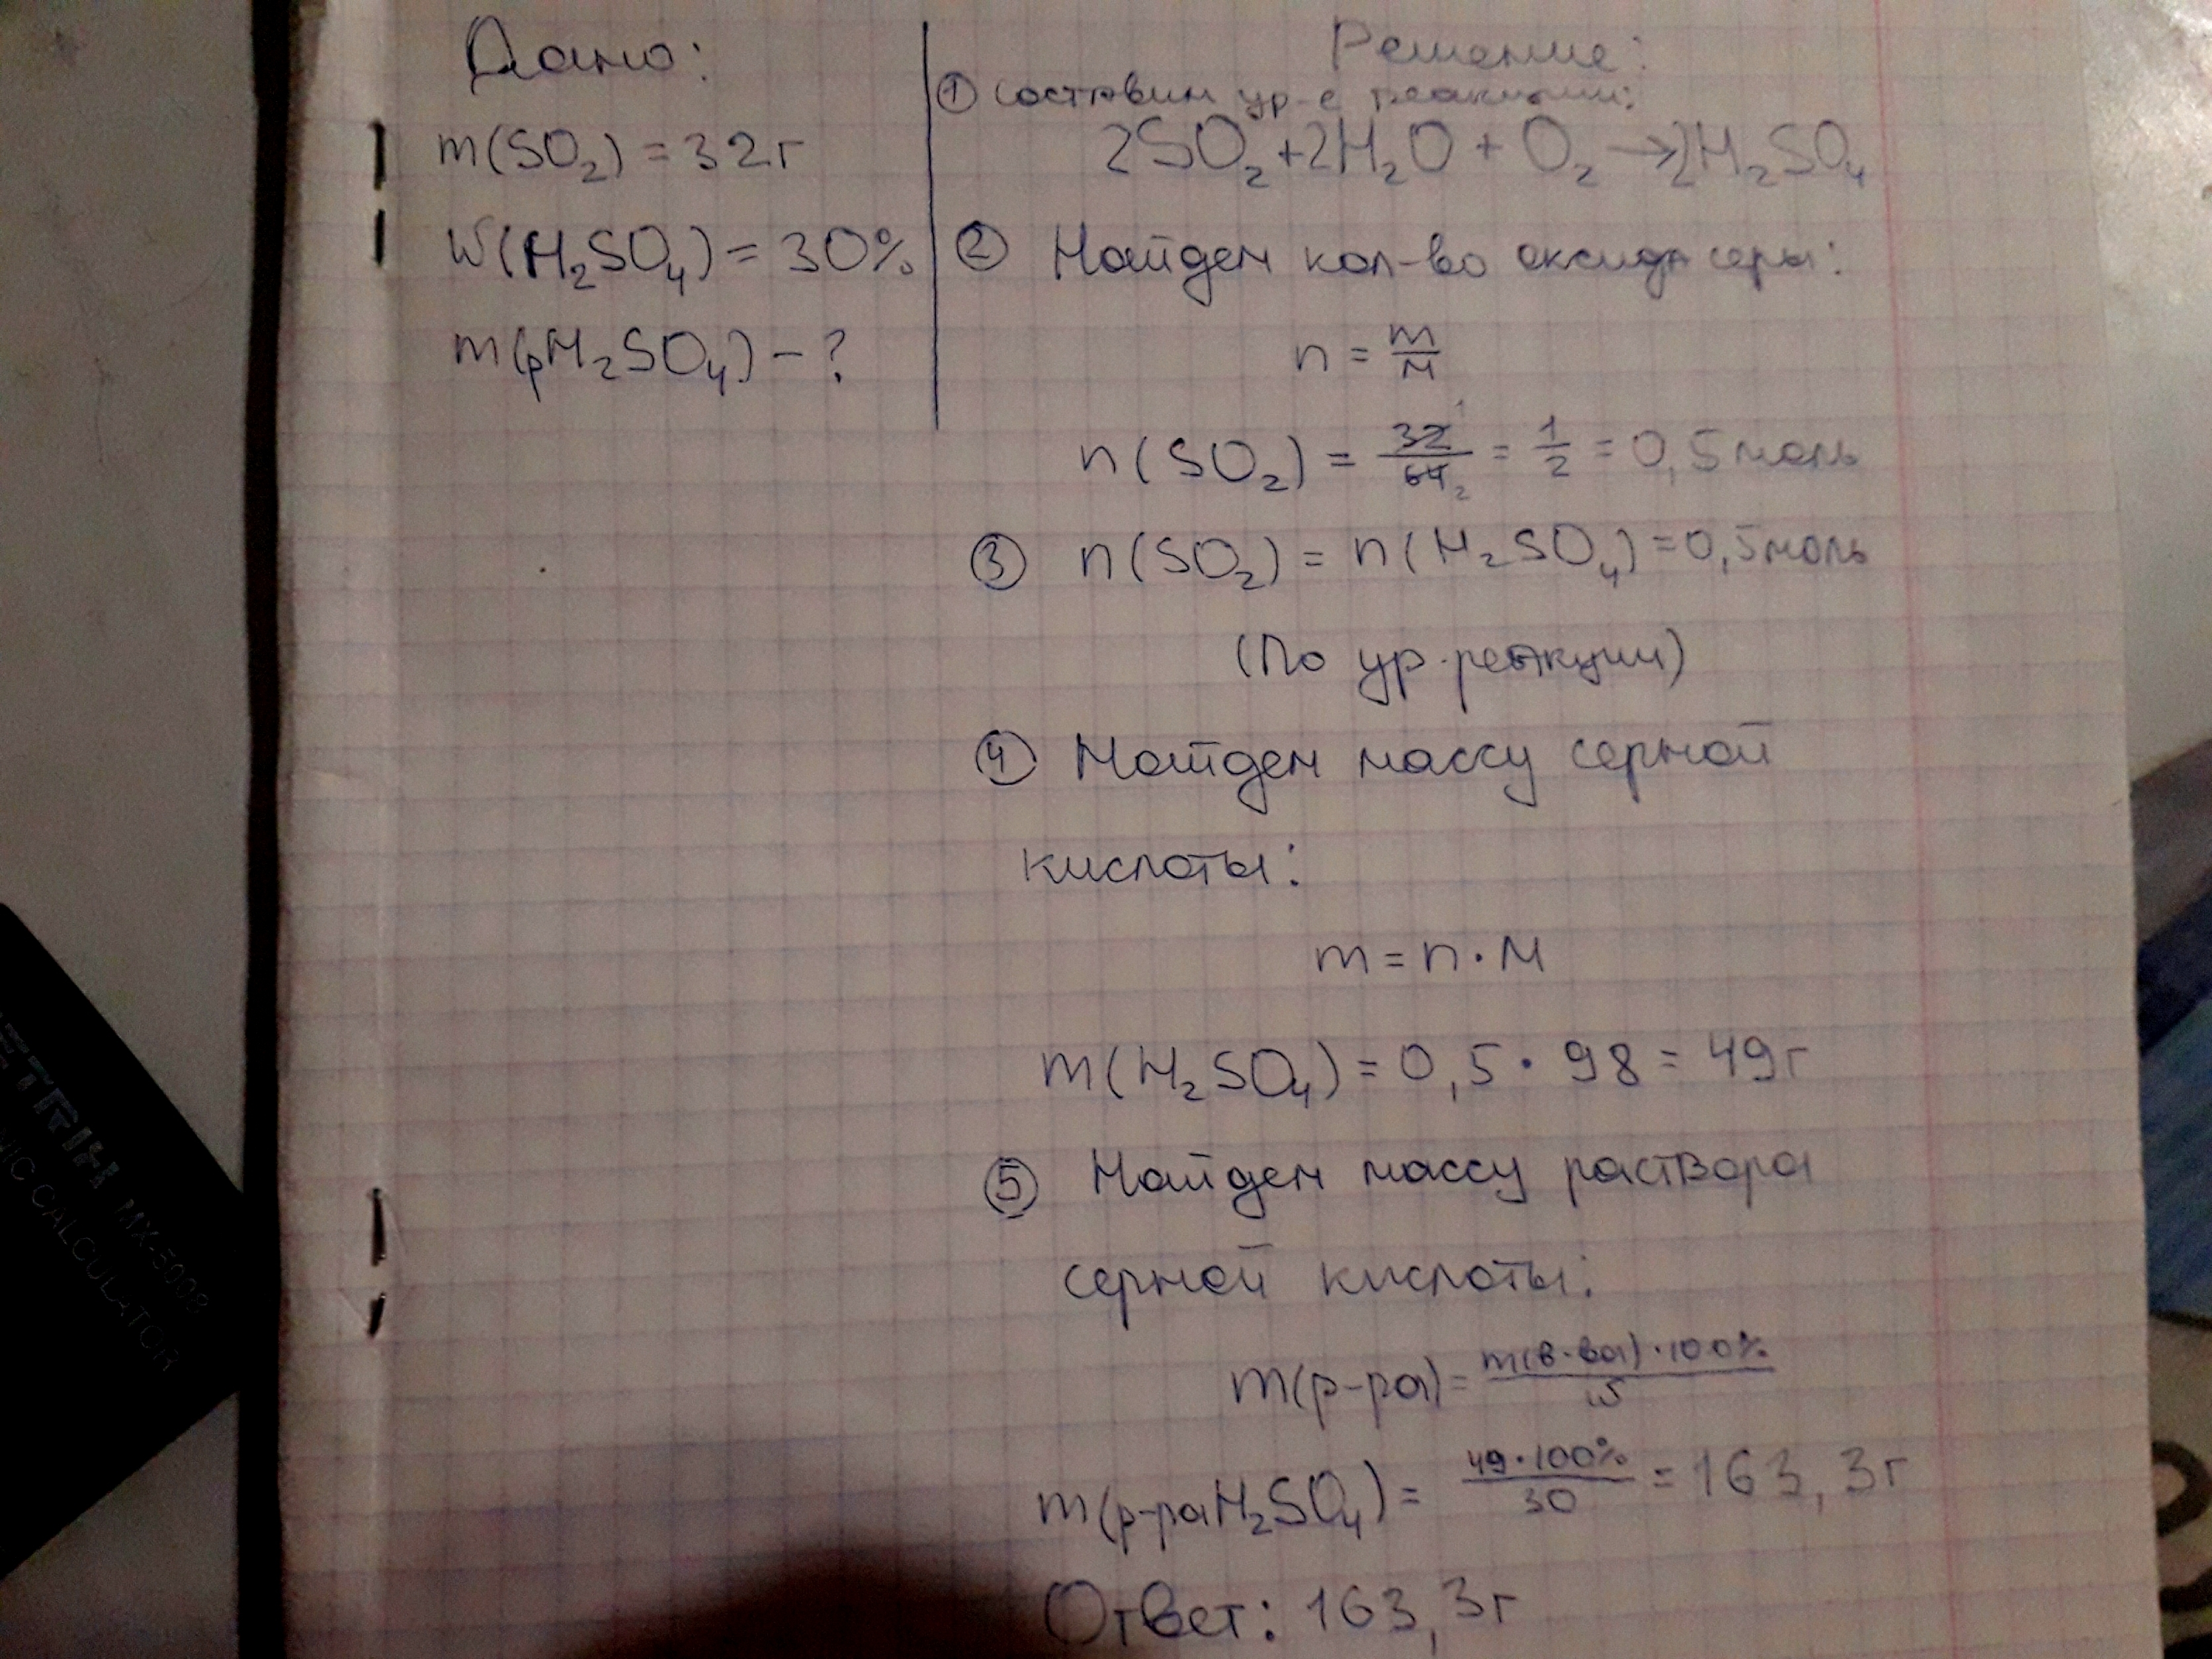 Дано:
m(SO₂) = 32г
W(H₂SO₄) = 30%
m(рH₂SO₄) – ?
Решение:
① составим ур-е реакции:
2SO₂ + 2H₂O + O₂ → 2H₂SO₄
② Найдем кол-во оксида серы:
n = m/M
n(SO₂) = 32/64 = 1/2 = 0,5 моль
③ n(SO₂) = n(H₂SO₄) = 0,5 моль
(По ур. реакции)
④ Найдем массу серной
кислоты:
m = n · M
m(H₂SO₄) = 0,5 · 98 = 49г
⑤ Найдем массу раствора
серной кислоты:
m(р-ра) = m(в-ва) · 100% / w
m(р-раH₂SO₄) = 49 · 100% / 30 = 163,3г
Ответ: 163,3г
MX-5008
CALCULATOR